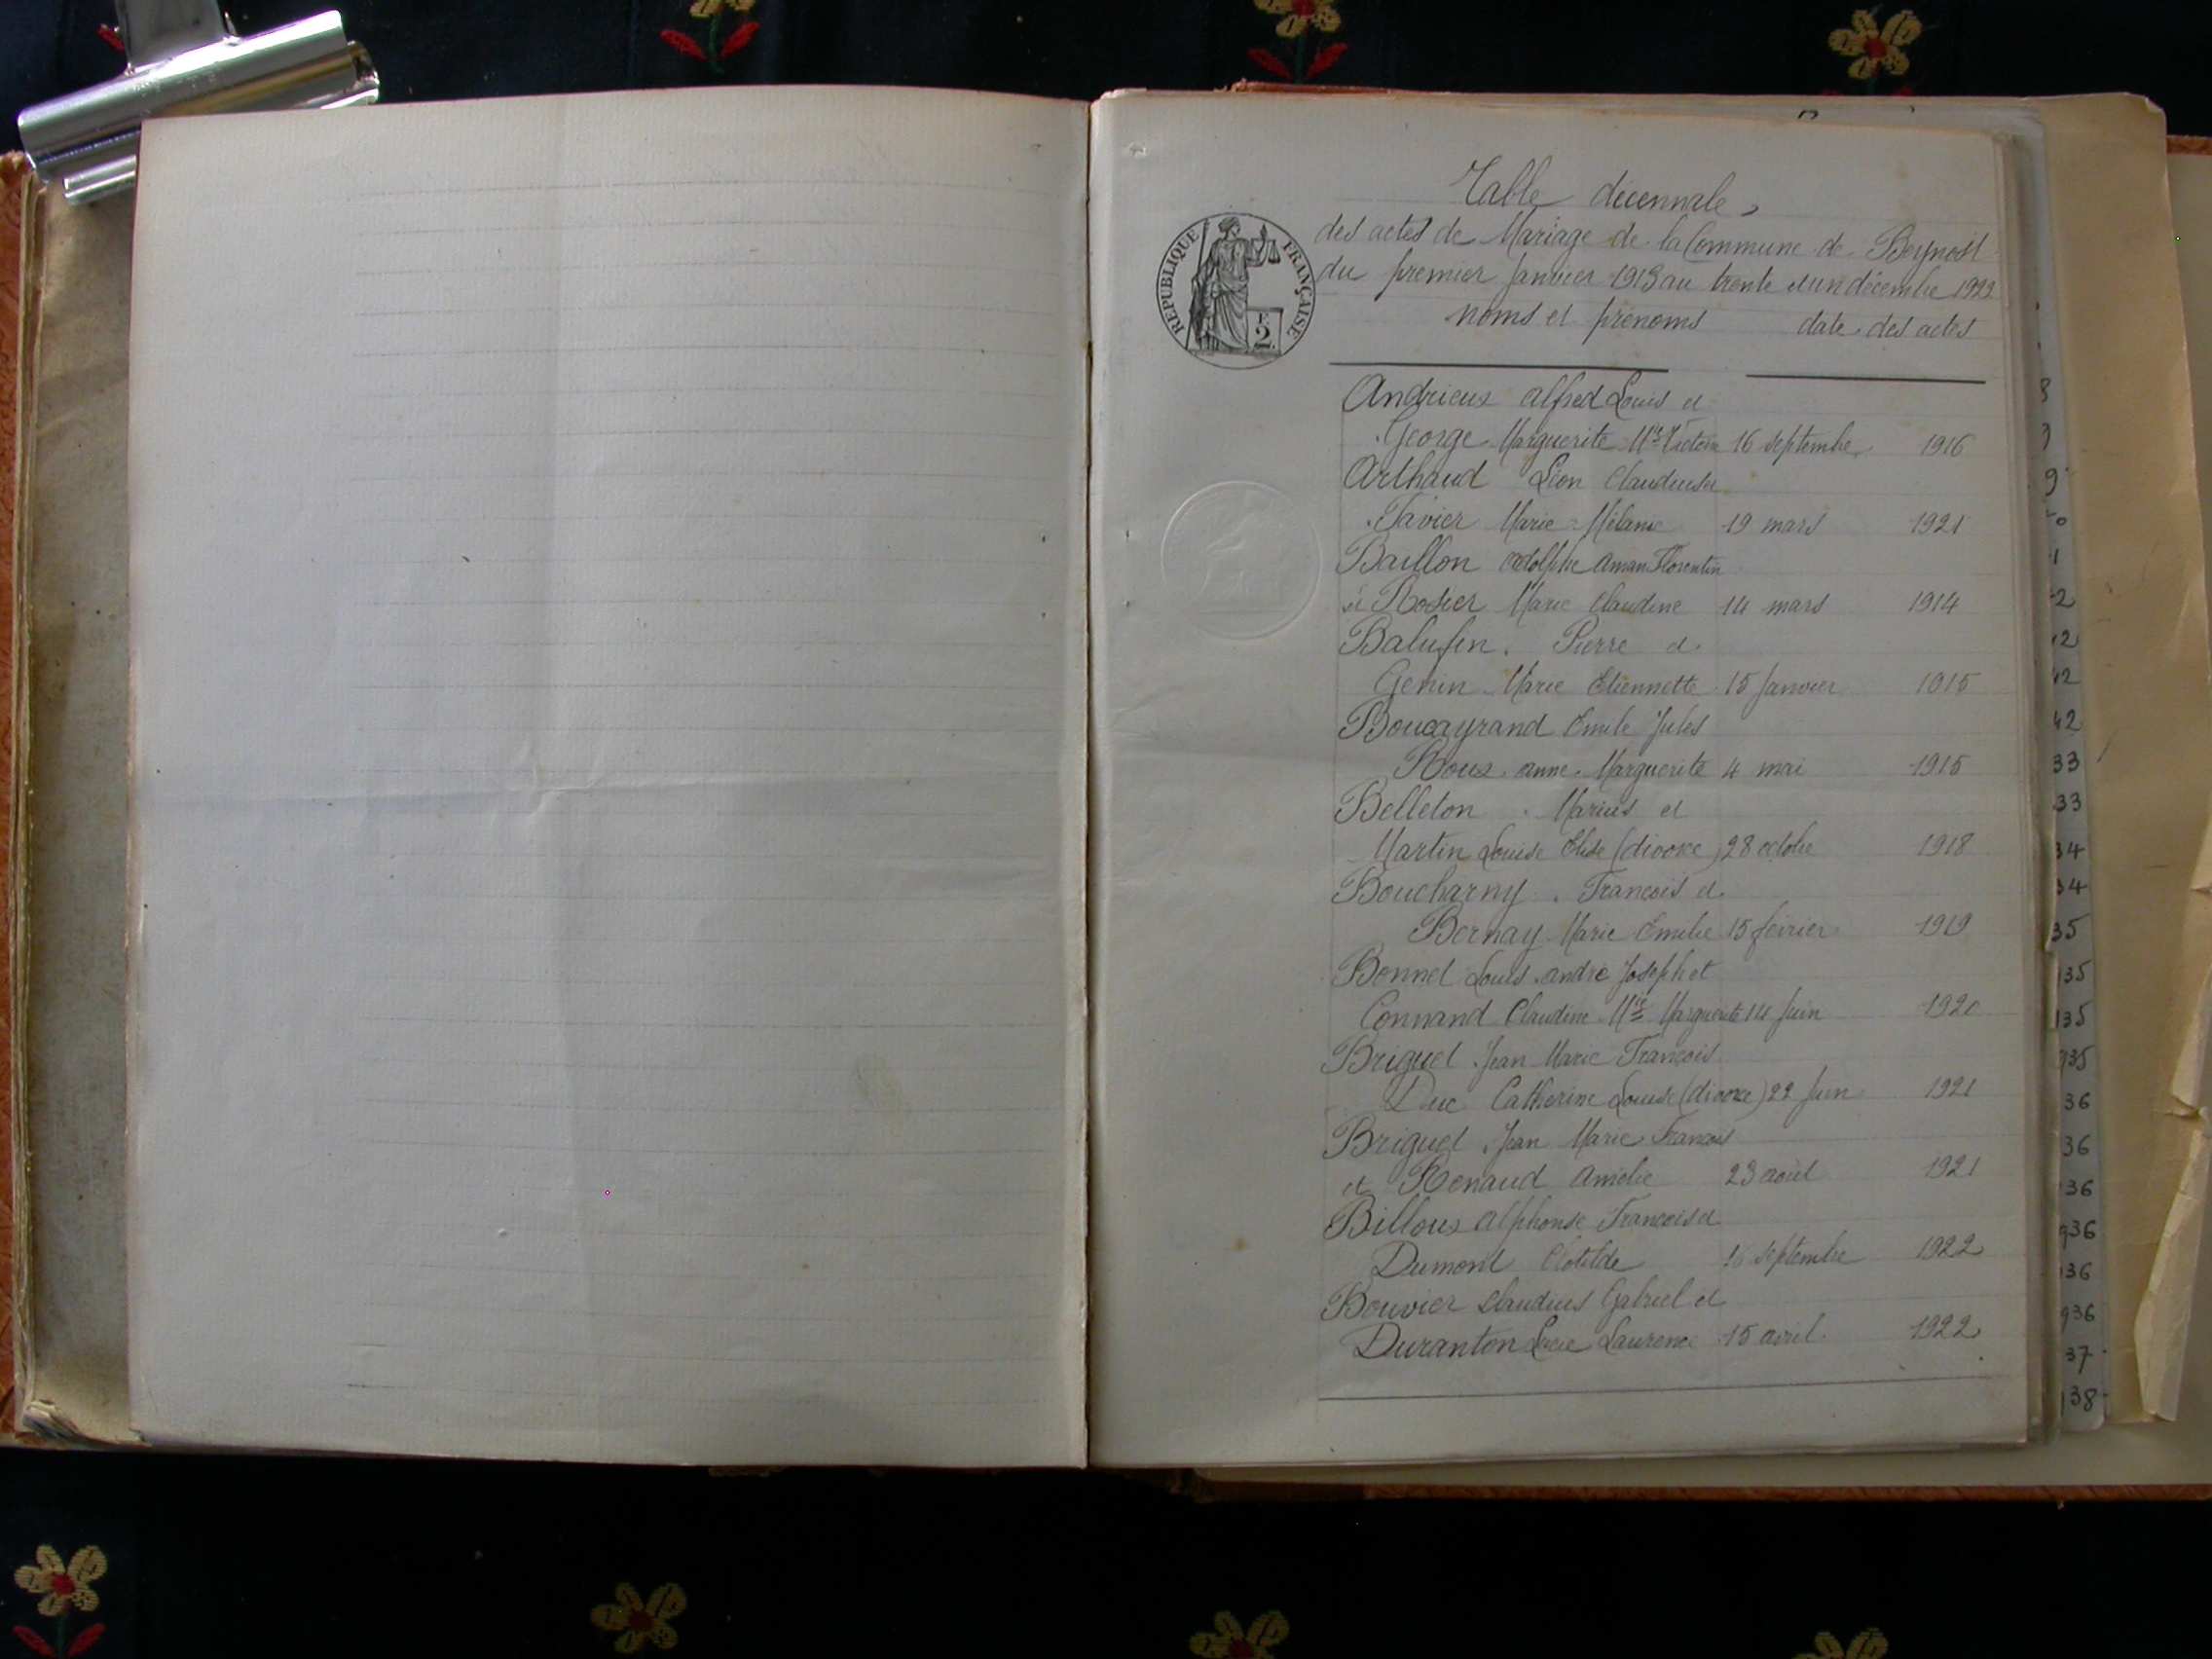 Table décennale
des actes de Mariage de la Commune de Beynost
du premier Janvier 1913 au trente et un décembre 1922
noms et prénoms date des actes
REPUBLIQUE FRANÇAISE
2
Andrieux Alfred Louis et
George Marguerite Mie Victoire 16 septembre 1916
Arthaud Léon Claudius et
Javier Marie Mélanie 19 mars 1921
Baillon Adolphe Aman Florentin
et Rosier Marie Claudine 14 mars 1914
Balufin Pierre et
Genin Marie Etiennette 15 Janvier 1915
Boucayrand Emile Jules
Roux Anne Marguerite 4 mai 1915
Belleton Marius et
Martin Louise Elise (divorce) 28 octobre 1918
Boucharny François et
Bernay Marie Emilie 15 février 1919
Bonnet Louis André Joseph et
Connand Claudine Mie Marguerite 14 Juin 1920
Briguet Jean Marie François
Duc Catherine Louise (divorce) 22 Juin 1921
Briguet Jean Marie François
et Renaud Amélie 23 août 1921
Billoux Alphonse François et
Dumont Clotilde 16 septembre 1922
Bouvier Claudius Gabriel et
Duranton Lucie Laurence 15 avril 1922
8
9
2
42
42
42
33
33
34
34
35
135
135
935
36
36
36
936
36
936
37
138